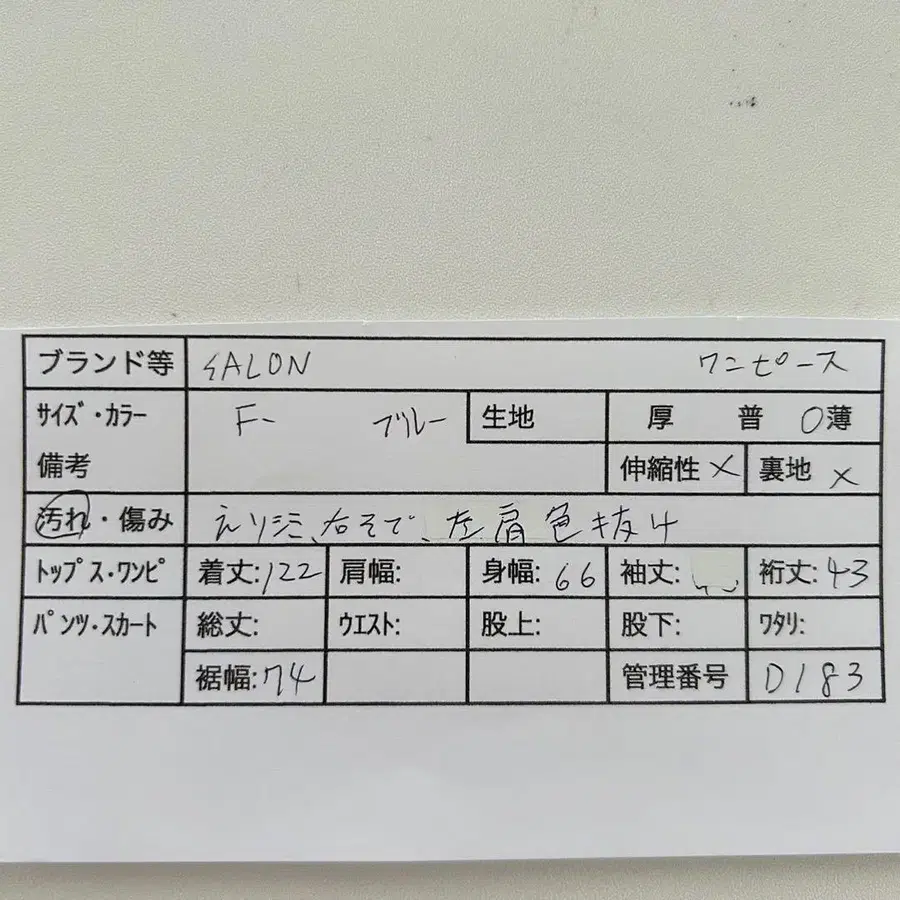 ブランド等 SALON ワンピース
サイズ・カラー F- ブルー 生地 厚 普 〇薄
備考 伸縮性 × 裏地 ×
汚れ・傷み えりシミ、右そで、左肩色抜け
トップス・ワンピ 着丈:122 肩幅: 身幅: 66 袖丈: 裄丈: 43
パンツ・スカート 総丈: ウエスト: 股上: 股下: ワタリ:
裾幅:74 管理番号 D183